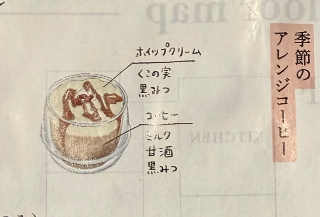 季節の
アレンジコーヒー
ホイップクリーム
くこの実
黒みつ
コーヒー
ミルク
甘酒
黒みつ
KITCHEN
floor map